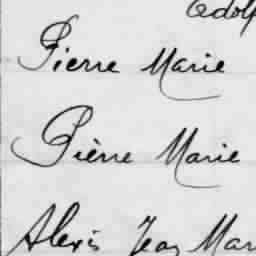 Adolf
Pierre Marie
Pièrre Marie
Alexis Jean Mar